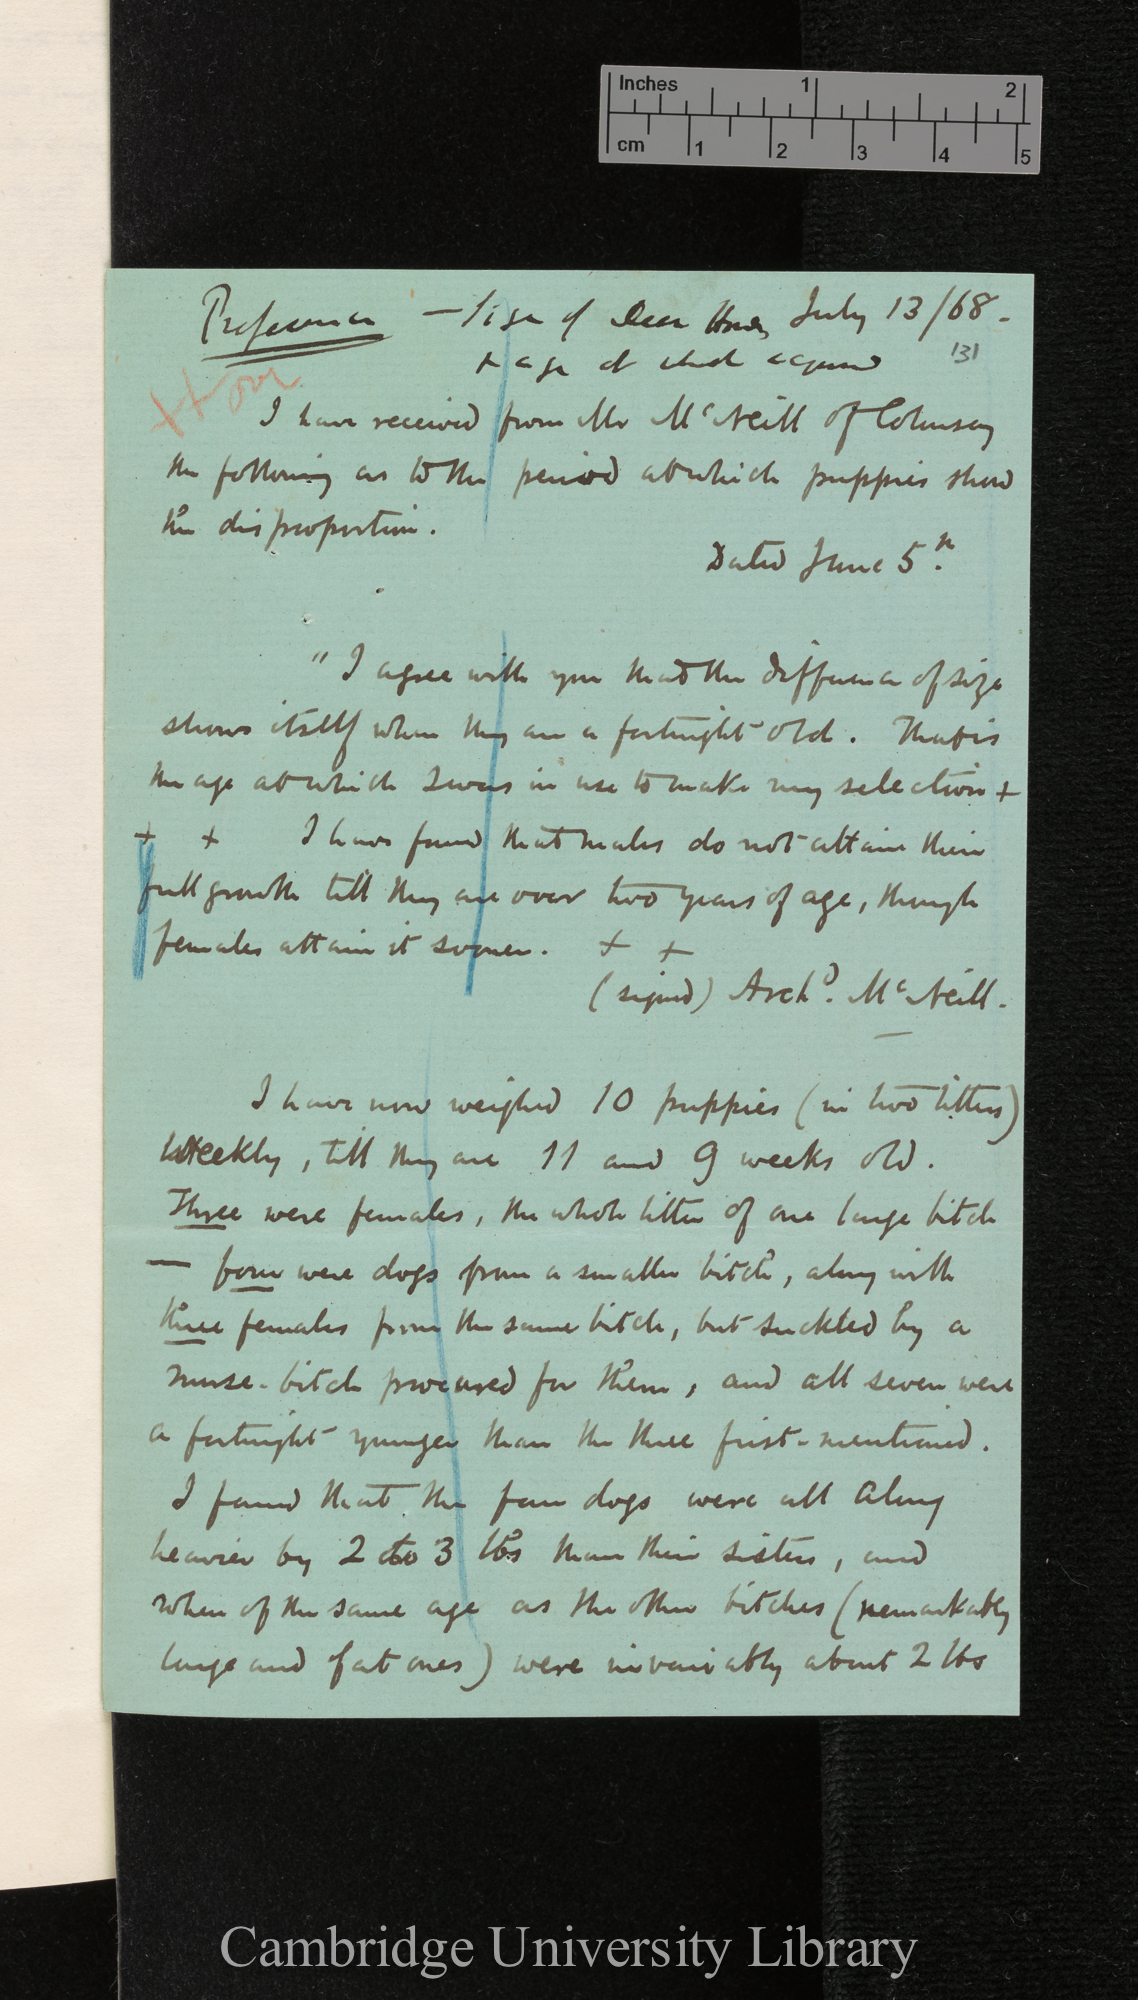 Inches 1 2
cm 1 2 3 4 5
Preference — Size of Deer Hounds July 13/68 -
+ age at which acquired 131
I have received from Mr McNeill of Colonsay
the following as to the period at which puppies show
the disproportion.
Dated June 5th.
"I agree with you that the difference of size
shows itself when they are a fortnight old. That is
the age at which I was in use to make my selection +
+ + I have found that males do not attain their
full growth till they are over two years of age, though
females attain it sooner. + +
(signed) Archd. McNeill.
I have now weighed 10 puppies (in two litters)
weekly, till they are 11 and 9 weeks old.
Three were females, the whole litter of one large bitch
— four were dogs from a smaller bitch, along with
three females from the same bitch, but suckled by a
nurse-bitch procured for them, and all seven were
a fortnight younger than the three first-mentioned.
I found that the four dogs were all along
heavier by 2 to 3 lbs than their sisters, and
when of the same age as the other bitches (remarkably
large and fat ones) were invariably about 2 lbs
Cambridge University Library